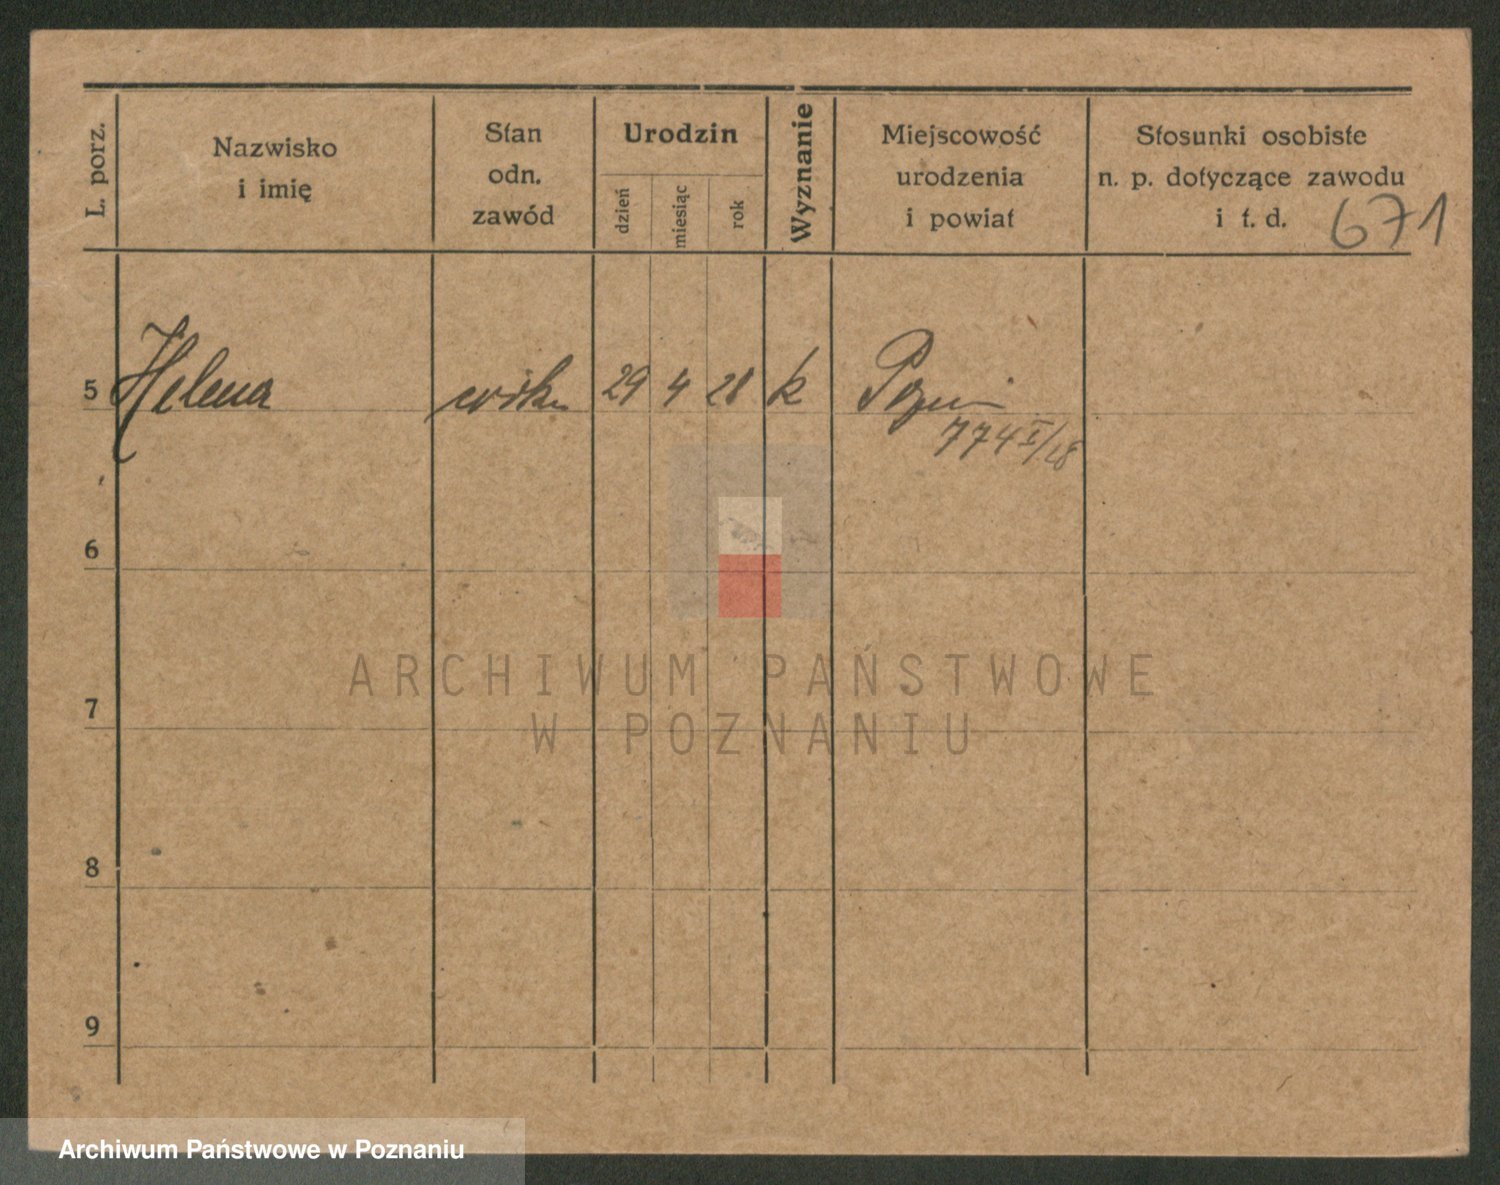 L. porz.
Nazwisko
i imię
Stan
odn.
zawód
Urodzin
dzień
miesiąc
rok
Wyznanie
Miejscowość
urodzenia
i powiat
Stosunki osobiste
n. p. dotyczące zawodu
i t. d.
671
5 Helena 29 4 28 k
774 I/28
6
7
8
9
ARCHIWUM PAŃSTWOWE
W POZNANIU
Archiwum Państwowe w Poznaniu